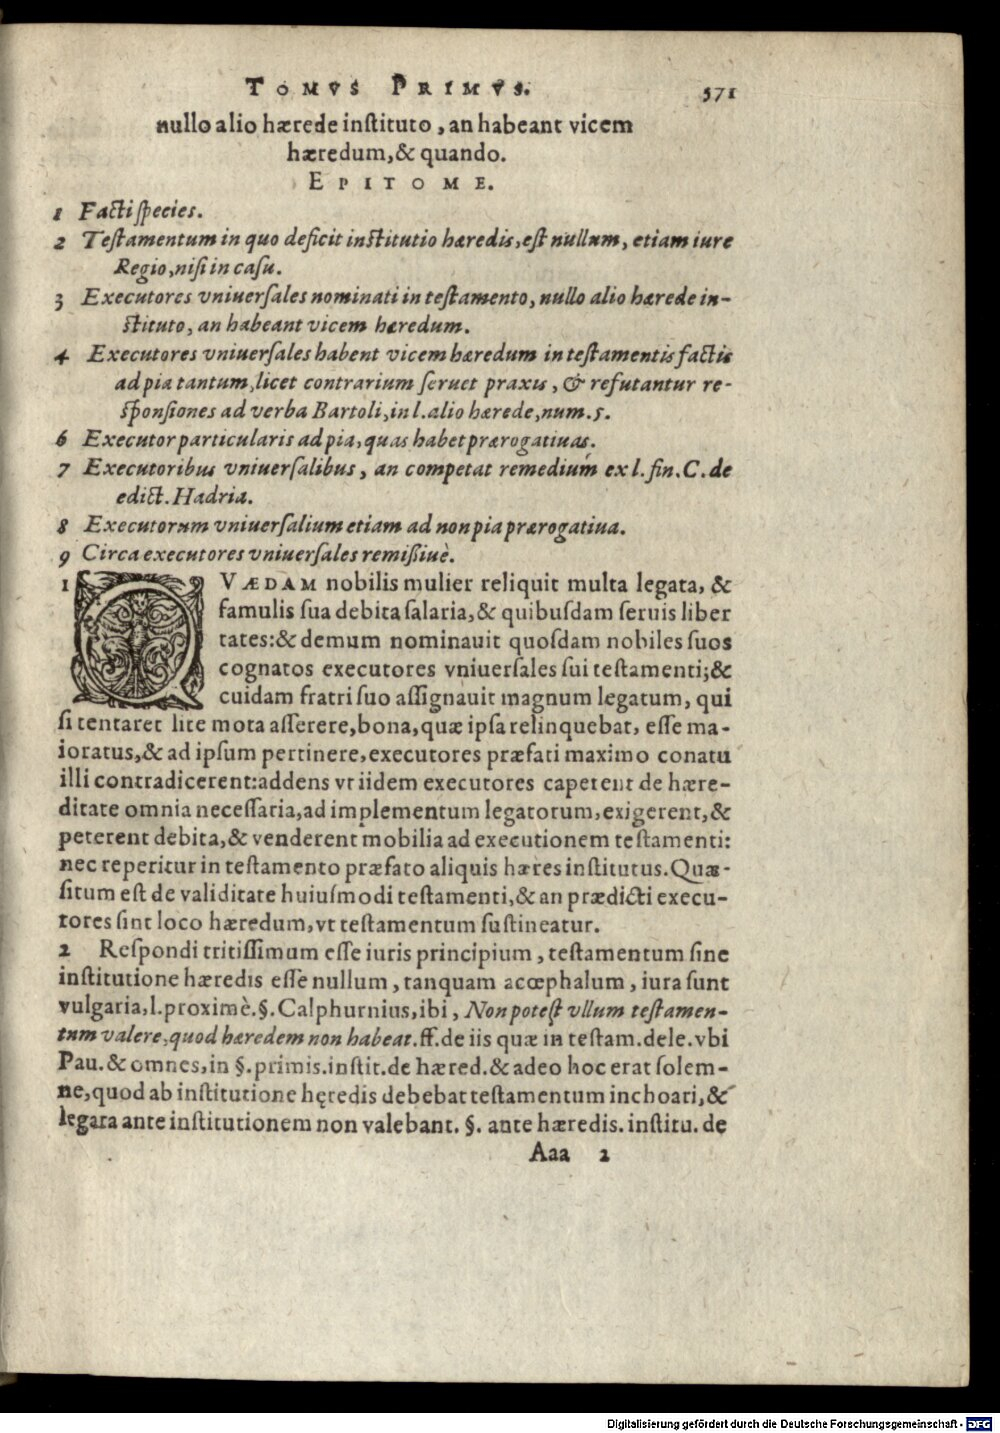 TOMVS PRIMVS. 571
nullo alio hærede instituto, an habeant vicem
hæredum, & quando.
EPITOME.
1 Facti species.
2 Testamentum in quo deficit institutio hæredis, est nullum, etiam iure
Regio, nisi in casu.
3 Executores vniuersales nominati in testamento, nullo alio hærede in-
stituto, an habeant vicem hæredum.
4 Executores vniuersales habent vicem hæredum in testamentis factis
ad pia tantum, licet contrarium seruet praxis, & refutantur re-
sponsiones ad verba Bartoli, in l. alio hærede, num. 5.
6 Executor particularis ad pia, quas habet prærogatiuas.
7 Executoribus vniuersalibus, an competat remedium ex l. fin. C. de
edict. Hadria.
8 Executorum vniuersalium etiam ad non pia prærogatiua.
9 Circa executores vniuersales remissiuè.
1 QVÆDAM nobilis mulier reliquit multa legata, &
famulis sua debita salaria, & quibusdam seruis liber
tates: & demum nominauit quosdam nobiles suos
cognatos executores vniuersales sui testamenti; &
cuidam fratri suo assignauit magnum legatum, qui
si tentaret lite mota asserere, bona, quæ ipsa relinquebat, esse ma-
ioratus, & ad ipsum pertinere, executores præfati maximo conatu
illi contradicerent: addens vt iidem executores caperent de hære-
ditate omnia necessaria, ad implementum legatorum, exigerent, &
peterent debita, & venderent mobilia ad executionem testamenti:
nec reperitur in testamento præfato aliquis hæres institutus. Quæ-
situm est de validitate huiusmodi testamenti, & an prædicti execu-
tores sint loco hæredum, vt testamentum sustineatur.
2 Respondi tritissimum esse iuris principium, testamentum sine
institutione hæredis esse nullum, tanquam acœphalum, iura sunt
vulgaria, l. proximè. §. Calphurnius, ibi, Non potest vllum testamen-
tum valere, quod hæredem non habeat. ff. de iis quæ in testam. dele. vbi
Pau. & omnes, in §. primis. instit. de hæred. & adeo hoc erat solem-
ne, quod ab institutione hęredis debebat testamentum inchoari, &
legata ante institutionem non valebant. §. ante hæredis. institu. de
Aaa 2
Digitalisierung gefördert durch die Deutsche Forschungsgemeinschaft - DFG